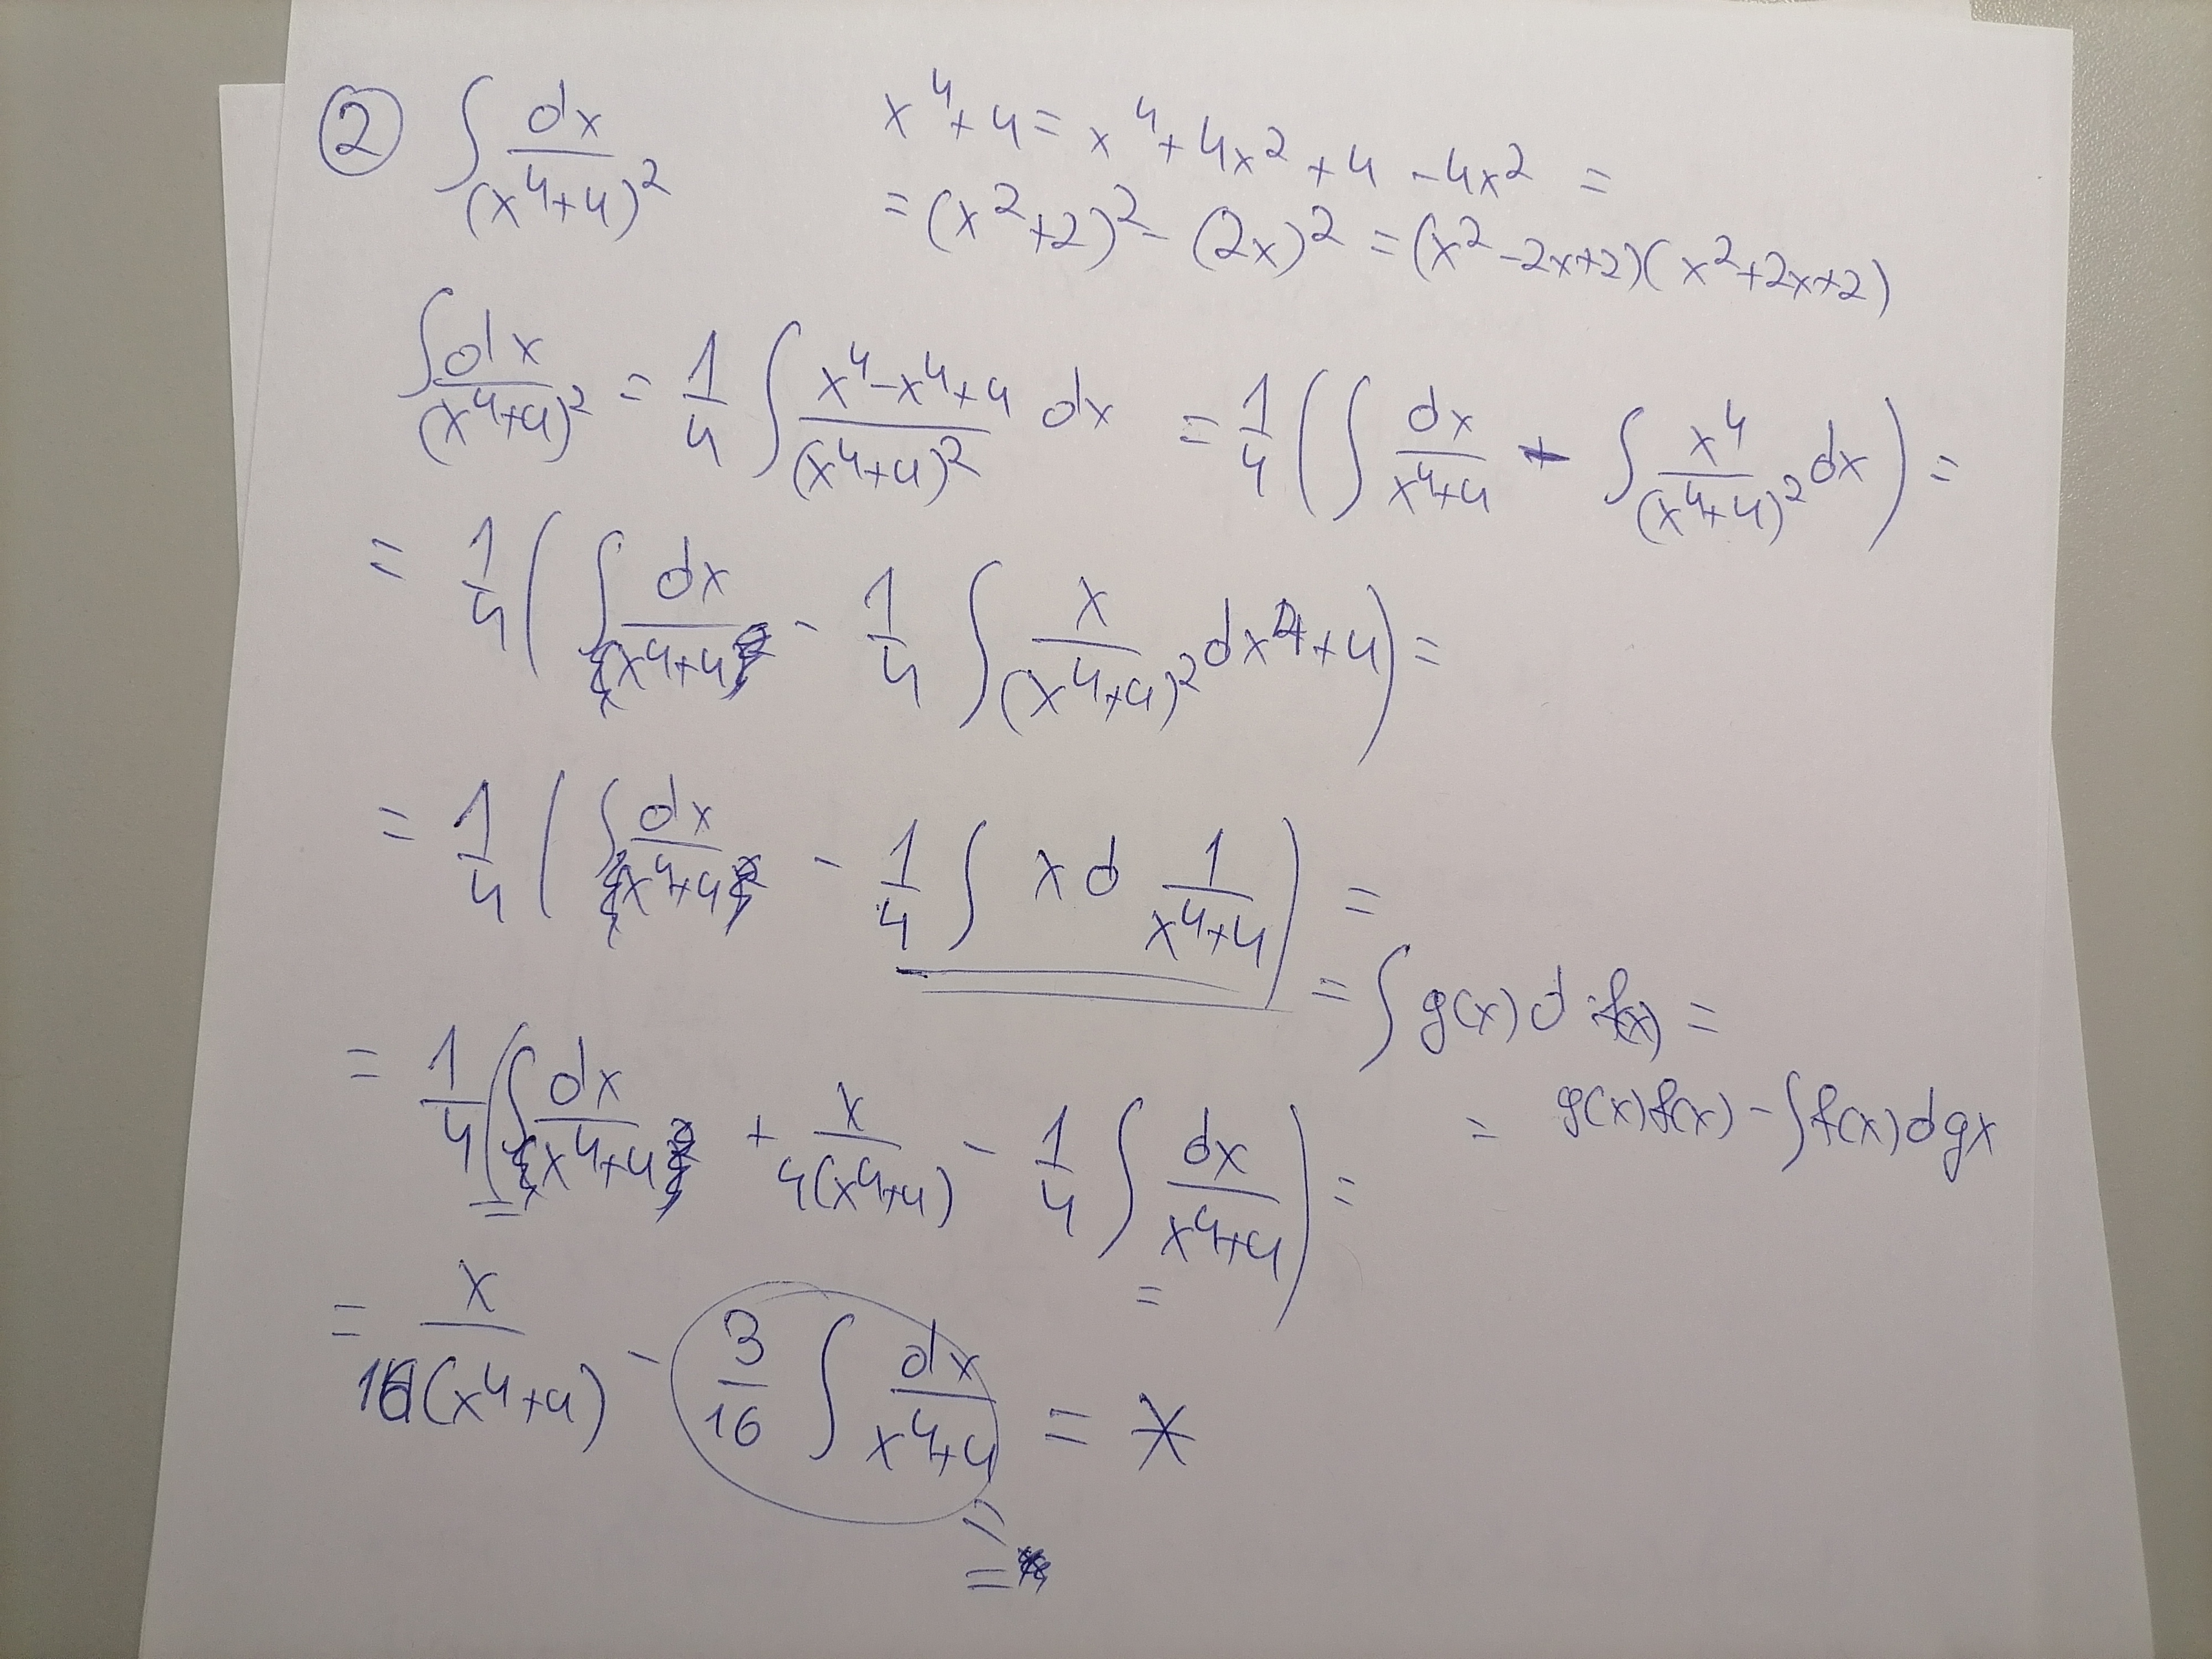 ② ∫ dx/(x⁴+4)²
x⁴+4 = x⁴+4x²+4-4x² =
= (x²+2)² - (2x)² = (x²-2x+2)(x²+2x+2)
∫ dx/(x⁴+4)² = 1/4 ∫ (x⁴-x⁴+4)/(x⁴+4)² dx = 1/4 ( ∫ dx/(x⁴+4) - ∫ x⁴/(x⁴+4)² dx ) =
= 1/4 ( ∫ dx/(x⁴+4) - 1/4 ∫ x/(x⁴+4)² dx⁴+4 ) =
= 1/4 ( ∫ dx/(x⁴+4) - 1/4 ∫ x d 1/(x⁴+4) ) =
= ∫ g(x) d f(x) =
= g(x)f(x) - ∫ f(x) dgx
= 1/4 ( ∫ dx/(x⁴+4) + x/(4(x⁴+4)) - 1/4 ∫ dx/(x⁴+4) ) =
= x/(16(x⁴+4)) - 3/16 ∫ dx/(x⁴+4) = *
=